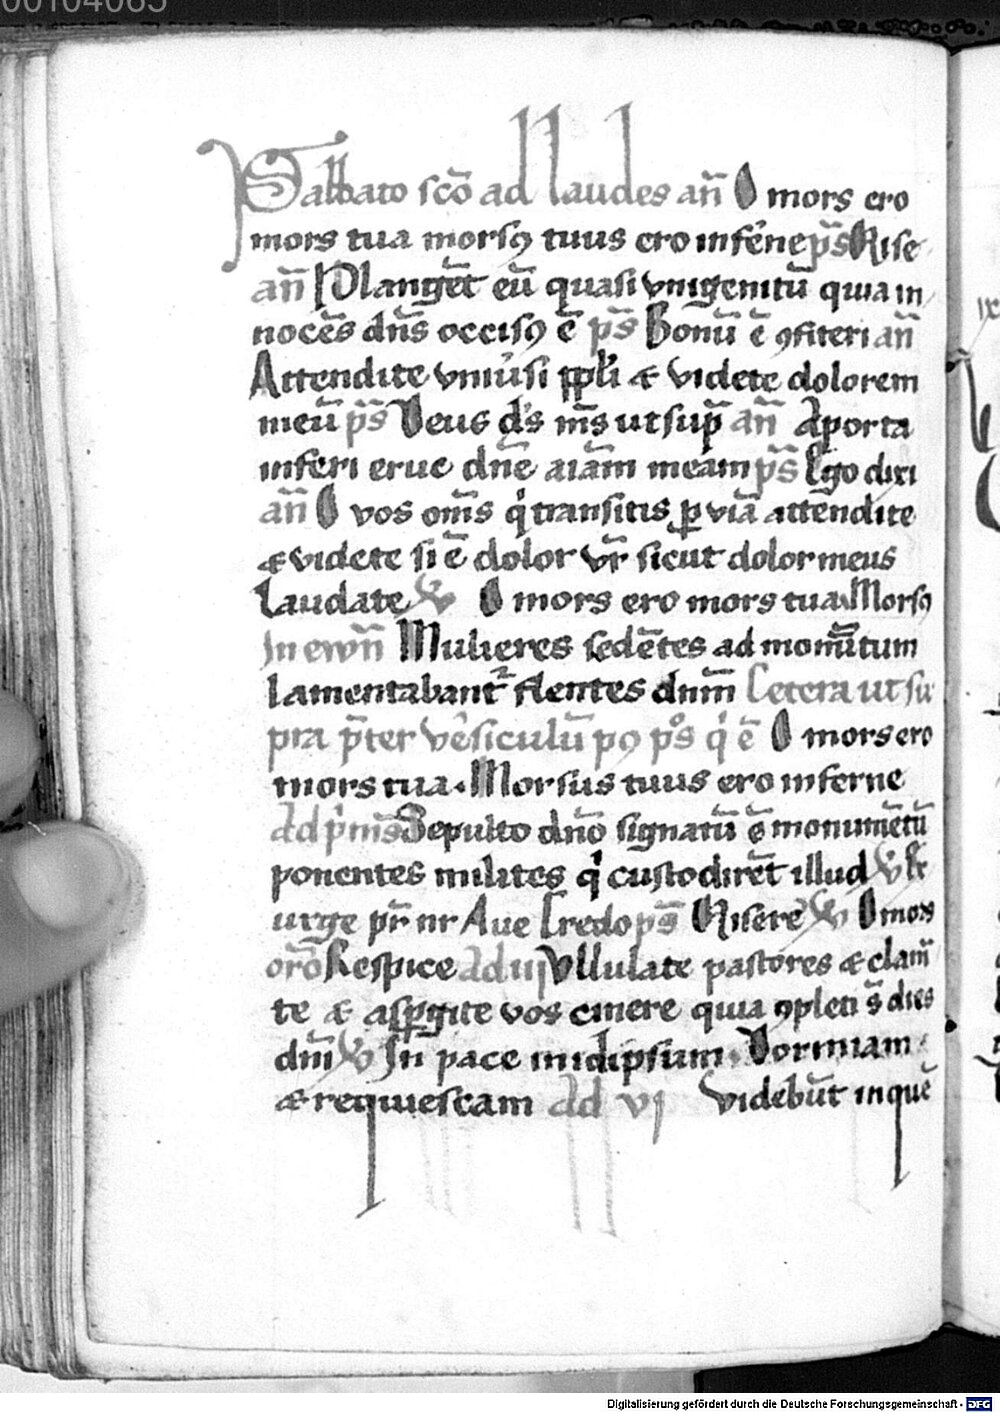 00104065
Sabbato sc̄o ad laudes an̄ O mors ero
mors tua morsꝯ tuus ero inferne ps̄ Mise
an̄ Planget̄ eū quasi vnigenitū quia in
nocēs dn̄s occisꝯ ē ps̄ Bonū ē ꝯfiteri an̄
Attendite vniūsi ppl̄i et videte dolorem
meū ps̄ Deus ds̄ ms̄ ut sup̄ an̄ A porta
inferi erue dn̄e aiam̄ meam ps̄ Ego dixi
an̄ O vos om̄s q̇ transitis ꝑ viā attēndite
et videte si ē dolor vr̄ sicut dolor meus
Laudate ℣ O mors ero mors tua Morsꝯ
In ewn̄ Mulieres sedētes ad monūtum
lamentabantᷣ flentes dn̄m Cetera ut su
pra p̄ter vēsiculū pꝯ psᷤ q̇ ē O mors ero
mors tua. Morsus tuus ero inferne
Ad p̄ms Sepulto dn̄o signatū ē monumētū
ponentes milites q̇ custodirēt illud ℣ kr
urge pr̄ nr Aue Credo ps̄ Miserē ℣ O mors
orō Respice Ad iij Vllulate pastores et clam̄
te et aspgite vos cinere quia ꝯpleti s̄ dies
dn̄i ℣ In pace in idipsum. Dormiam
et requiescam Ad vj Videbūt in quē
Digitalisierung gefördert durch die Deutsche Forschungsgemeinschaft - DFG